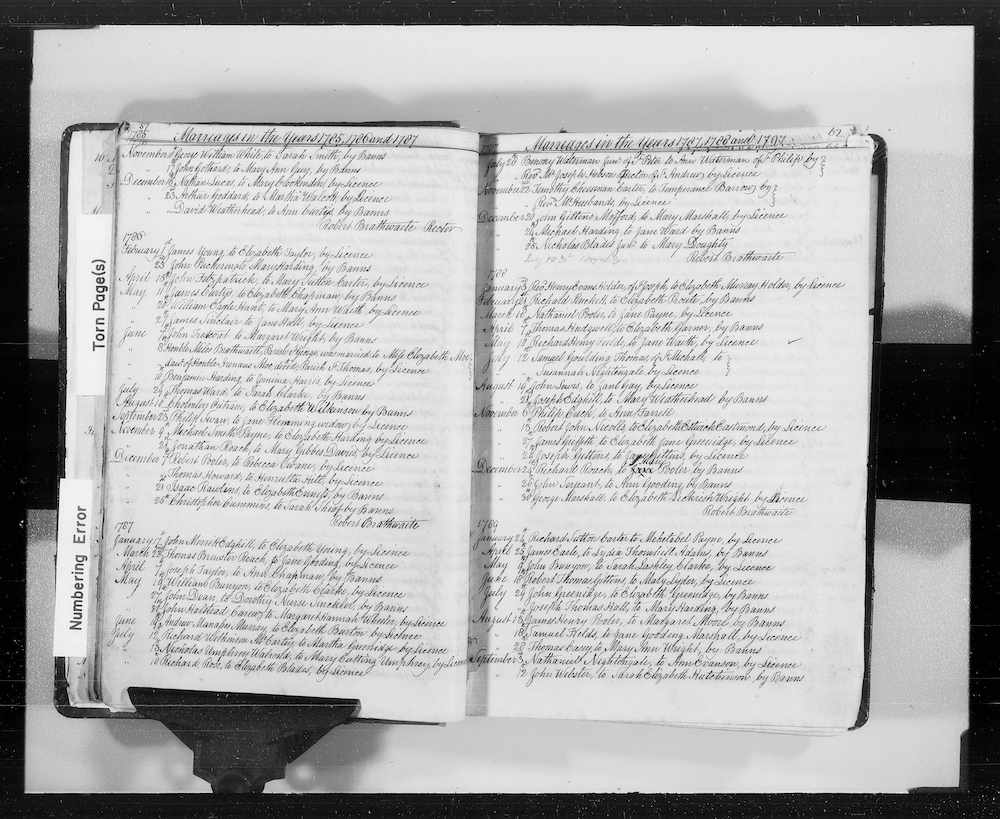 Torn Page(s)
Numbering Error
1785
Marriages in the Years 1785, 1786 and 1787
November George William White, to Sarah Smith, by Banns
" John Gothard, to Mary Ann Guy, by Banns
December Nathan Lucas, to Mary Crookenden, by Licence
" 23 Arthur Goddard, to Martha Walcott, by Licence
" David Weatherhead, to Ann Curtis, by Banns
Robert Brathwaite Rector
1786
February James Young, to Elizabeth Taylor, by Licence
" 23 John Puckering to Mary Harding, by Banns
April 15 John Fitzpatrick, to Mary Sutton Carter, by Licence
May 11 James Curtis, to Elizabeth Chapman, by Banns
" 20 William Eagle Hunt, to Mary Ann Waith, by Licence
" James Sinclair, to Jane Hall, by Licence
June John to Margaret Wright, by Banns
" 8 Honble Miles Brathwaite, Parish St George, was married to Miss Elizabeth Moe
daur of Honble Irenaeus Moe, decd of Parish St Thomas, by Licence
" Benjamin Harding, to Jemima Harris, by Licence
July 24 Thomas Ward, to Sarah Clarke, by Banns
August Cholmley Putram, to Elizabeth Wilkinson, by Banns
September 23 Philip Swan, to Jane Flemming widow, by Licence
November 9 Michael Smith Payne, to Elizabeth Harding by Licence
" Jonathan Roach, to Mary Gibbes David, by Licence
December 7 Robert Pooler, to Rebecca by Licence
" Thomas Howard, to Henrietta Hill, by Licence
" 21 Isaac Rawlins, to Elizabeth by Banns
" 25 Christopher Cummins, to Sarah by Banns
Robert Brathwaite
1787
January John Merritt Edghill, to Elizabeth Young, by Licence
March Thomas Brewster Roach, to Jane Gooding, by Licence
April Joseph Taylor, to Ann Chapman, by Banns
May William Bunyon, to Elizabeth Clarke, by Licence
" 27 John Dean, to Dorothy Nurse Sinckler, by Banns
" John Halstead Carew, to Margaret Hannah Wheeler, by Licence
June Andrew Manages Murray, to Elizabeth Burton, by Licence
July 12 Richard Workman McCarter, to Martha Greenidge by Licence
" 15 Nicholas Umphrey Walrond, to Mary Cutting Umphrey, by Licence
" 18 Richard Rose, to Elizabeth Blades, by Licence
Marriages in the Years 1787, 1788 and 1792
62
July 26 Benony Waterman Junr of St Peter to Ann Waterman of St Philip by
Revd Mr Joseph Hebson Rector of St Andrew, by Licence
November 22 Timothy Cheesman Carter, to Temperance Barrow, by
" Revd Mr Husbands, by Licence
December 20 John Gittens Mofford, to Mary Marshall, by Licence
" 24 Michael Harding, to Jane Ward by Banns
" 28 Nicholas Blades to Mary Doughty
Robert Brathwaite
1788
January 3 Revd Henry Evans Holder, of St Joseph, to Elizabeth Murray Holder, by Licence
February Richard to Elizabeth Proute, by Banns
March 16 Nathaniel Poler, to Jane Payne, by Licence
April 7 Thomas Hudgwell, to Elizabeth Garner, by Banns
May 10 Richard Henry Feild, to Jane Waith, by Licence
July 12 Samuel Goulding Thomas, of St Michael, to
Susannah Nightingale, by Licence
August 16 John Lewis, to Jane Gay, by Licence
" Joseph Edghill, to Mary Weatherhead, by Banns
November 6 Philip Cack, to Ann Farrell
" 15 Robert John Necolls, to Elizabeth Estwick Eastmond, by Licence
" 27 James Griffith, to Elizabeth Jane Greenidge, by Licence
" Joseph Gittens, to Jane Gittens, by Licence
December 2 Richard Roach, to Mary Pooler, by Banns
" 26 John Sergeant, to Ann Gooding, by Banns
" 30 George Marshall, to Elizabeth Wright, by Licence
Robert Brathwaite
1789
January Richard Sutton Carter to Mehetabel Payne, by Licence
April 25 James Earle, to Lydia Thornhill Adams, by Banns
May 9 John Bunyon, to Sarah Lashley Clarke, by Licence
June Robert Thomas Gittens, to Mary by Licence
July 24 John Greenidge, to Elizabeth Greenidge, by Banns
" Joseph Thomas Hall, to Mary Harding, by Banns
August 13 James Henry Pooler, to Margaret Moore, by Banns
" 18 Samuel Fields, to Jane Gooding Marshall, by Licence
" 20 Thomas Casey, to Mary Ann Wright, by Banns
September 3 Nathaniel Nightingale, to Ann Evanson, by Licence
" 12 John Webster, to Sarah Elizabeth Hutchinson, by Banns